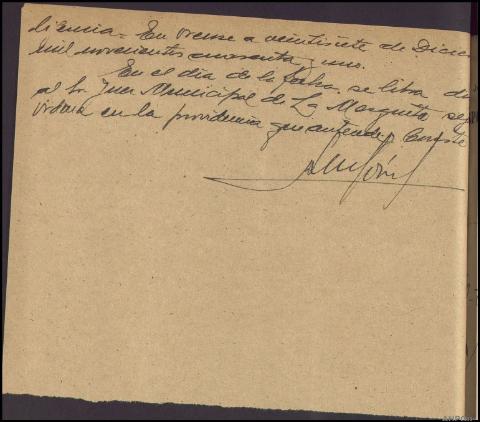 ligencia.- En Orense a veintisiete de Dicie
mil novecientos cuarenta y uno.
En el día de la fecha, se libra
al Sr. Juez Municipal de La Mezquita, se
en la providencia que antecede, Conste